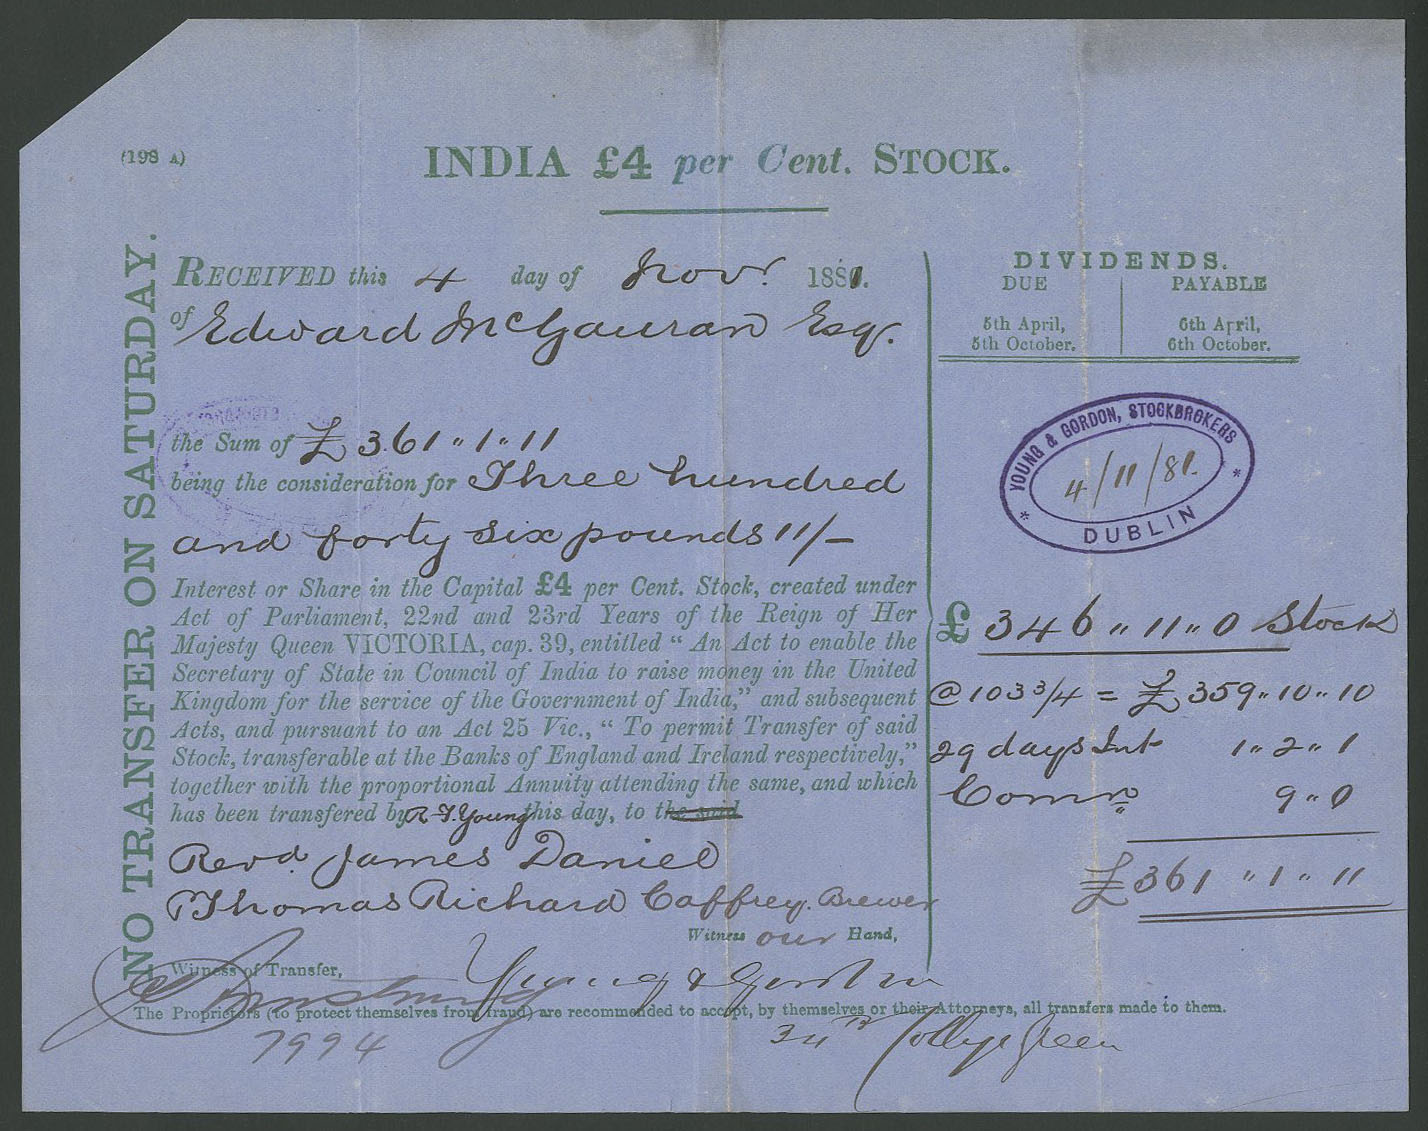 (198 A)
INDIA £4 per Cent. STOCK.
NO TRANSFER ON SATURDAY.
RECEIVED this 4 day of Novr. 1881.
of Edward McGauran Esq.
the Sum of £361"1"11
being the consideration for Three hundred
and forty six pounds 11/-
Interest or Share in the Capital £4 per Cent. Stock, created under
Act of Parliament, 22nd and 23rd Years of the Reign of Her
Majesty Queen VICTORIA, cap. 39, entitled "An Act to enable the
Secretary of State in Council of India to raise money in the United
Kingdom for the service of the Government of India," and subsequent
Acts, and pursuant to an Act 25 Vic., "To permit Transfer of said
Stock, transferable at the Banks of England and Ireland respectively,"
together with the proportional Annuity attending the same, and which
has been transfered by R. F. Young this day, to the said
Revd. James Daniel
Thomas Richard Caffrey. Brewer
Witness our Hand,
Witness of Transfer,
Young & Gordon
The Proprietors (to protect themselves from fraud) are recommended to accept, by themselves or their Attorneys, all transfers made to them.
7994
College Green
DIVIDENDS.
DUE PAYABLE
5th April, 6th April,
5th October. 6th October.
YOUNG & GORDON, STOCKBROKERS
4/11/81.
* DUBLIN *
£346"11"0 Stock
@ 103 3/4 = £359"10"10
29 days Int 1"2"1
Comn 9"0
£361"1"11